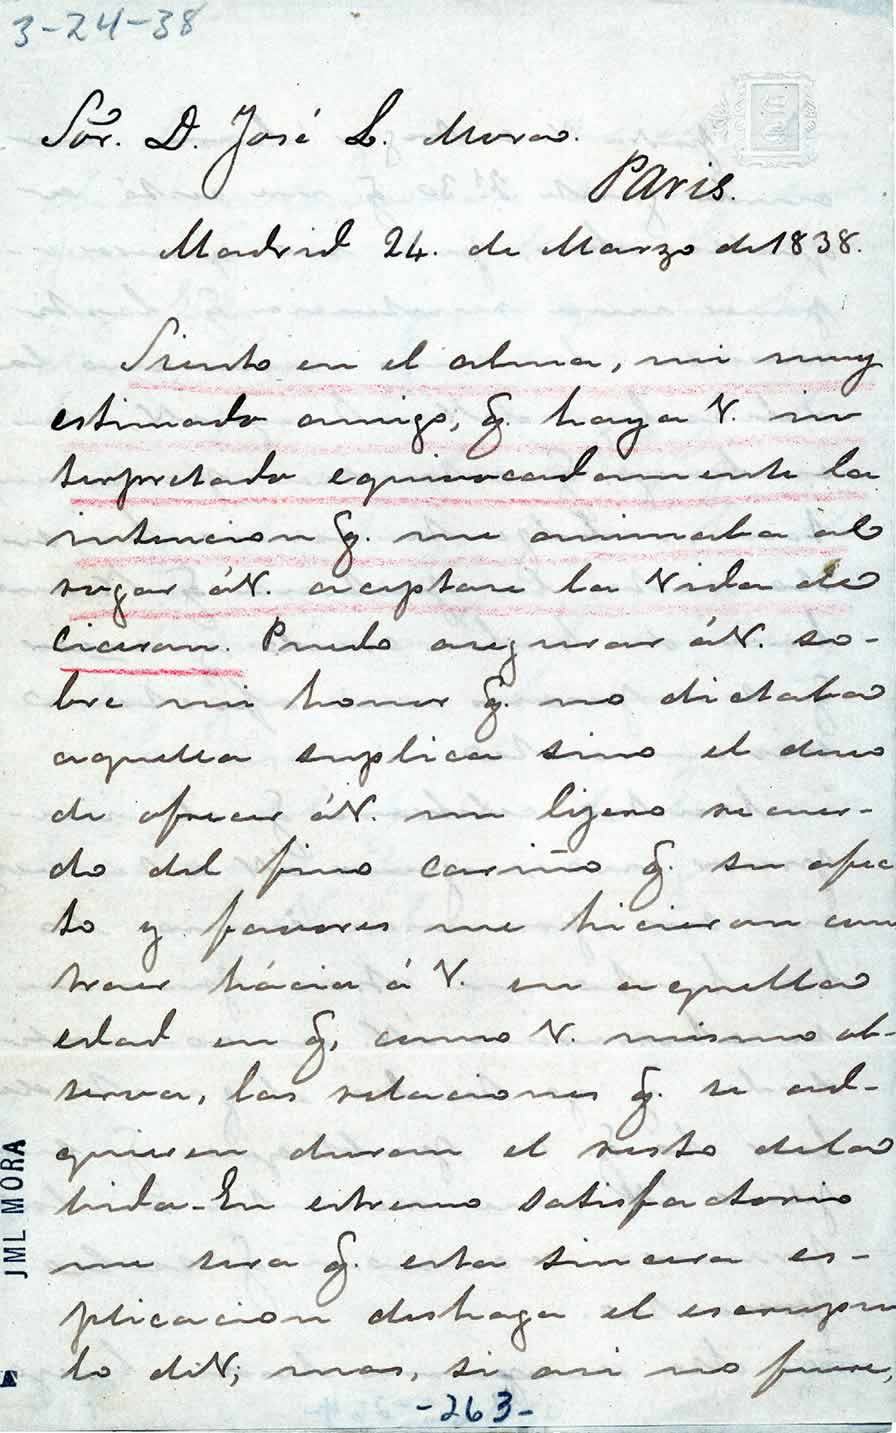 3-24-38
Sōr. D. José L. Mora.
Paris.
Madrid 24. de Marzo de 1838.
Siento en el alma, mi muy
estimado amigo, q. haya V. in
terpretado equivocadamente la
intencion q. me animaba al
rogar á V. aceptase la Vida de
Ciceron. Puedo asegurar á V. so-
bre mi honor q. no dictaba
aquella suplica sino el deseo
de ofrecer á V. un lijero recuer-
do del fino cariño q. su afec
to y favores me hicieron con
traer hácia á V. en aquella
edad en q., como V. mismo ob-
serva, las relaciones q. se ad-
quieren duran el resto de la
bida - En estremo satisfactorio
me sera q. esta sincera es-
plicacion deshaga el escrupu
lo de V; mas, si asi no fuere,
-263-
JML MORA